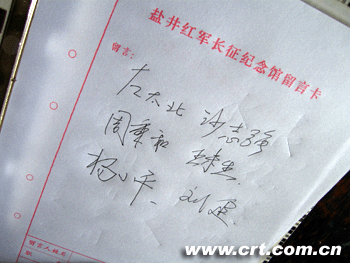 盐井红军长征纪念馆留言卡
留言：
左太北 沙志强
周秉和
杨小平 刘蒙
留言人姓名
www.crt.com.cn